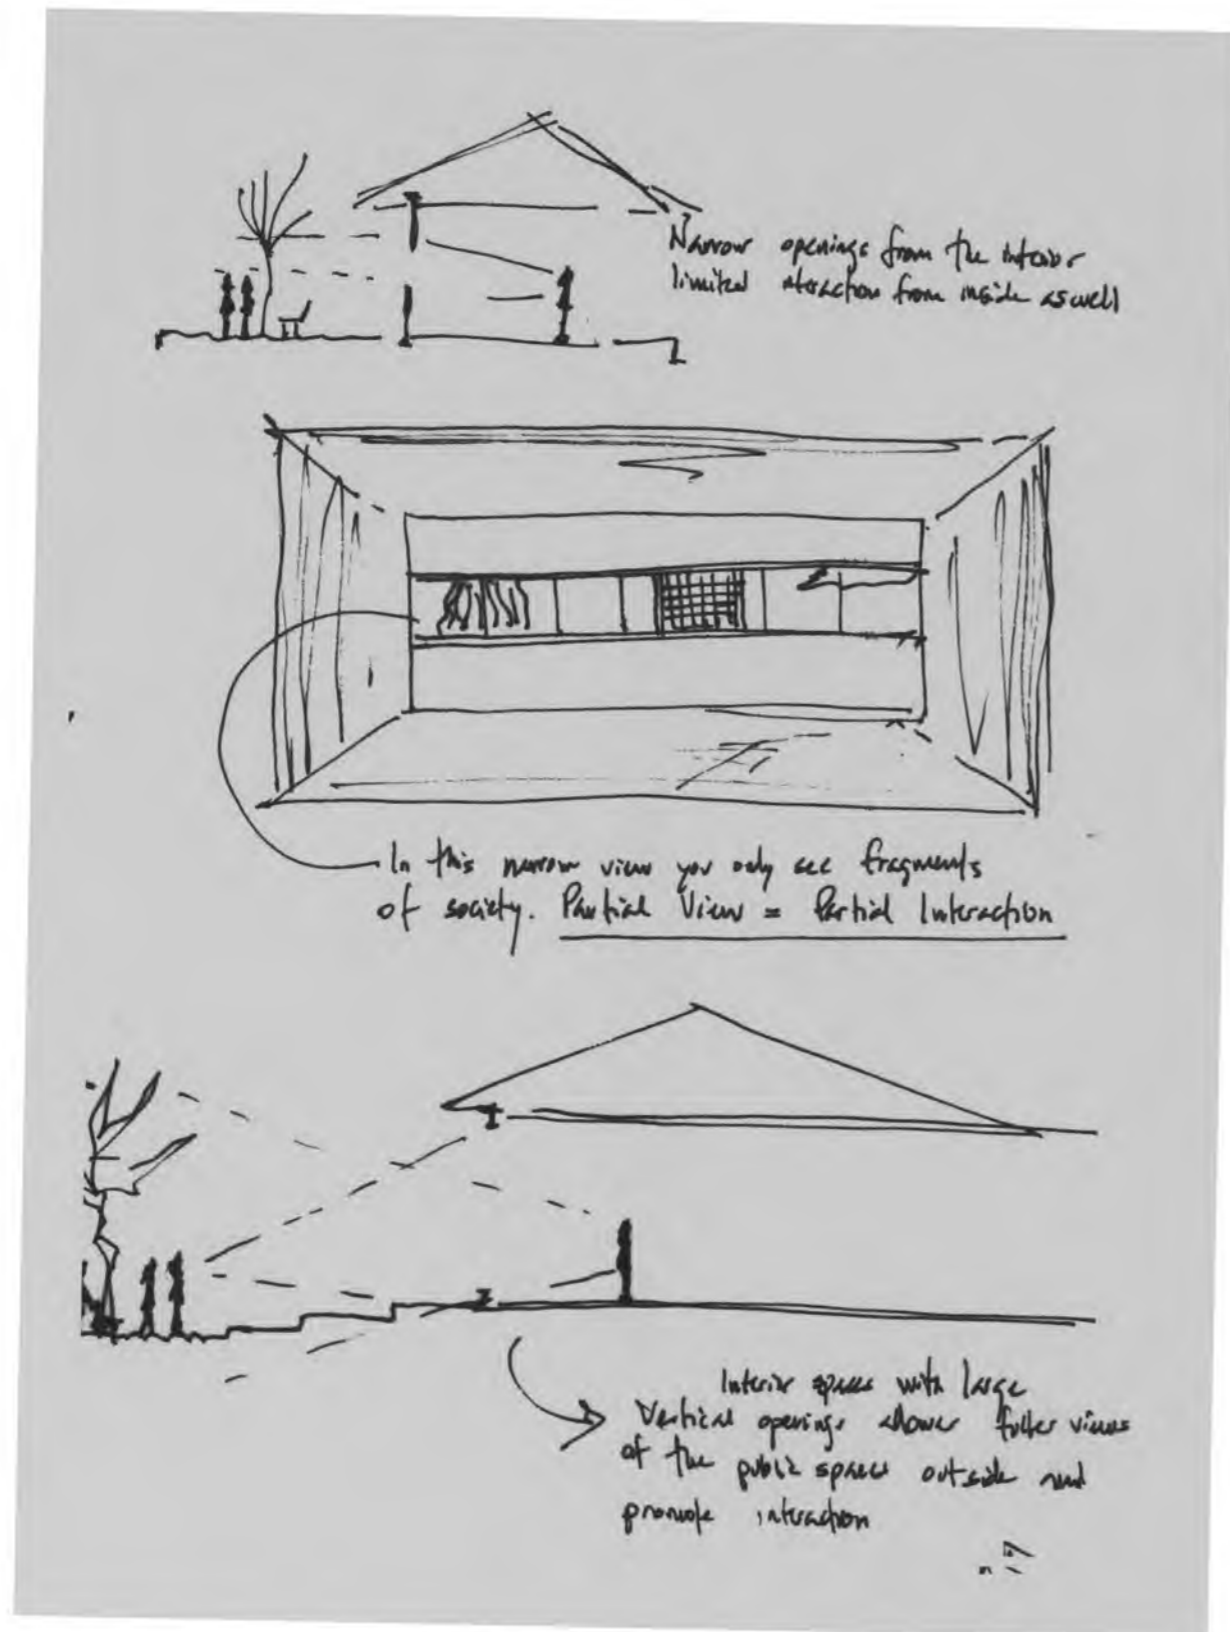 Narrow openings from the interior
limited nteraction from inside aswell
In this narrow view you only see fragments
of society. Partial View = Partial Interaction
Interior spaces with large
Vertical openings allows fuller views
of the public spaces outside and
promote interaction